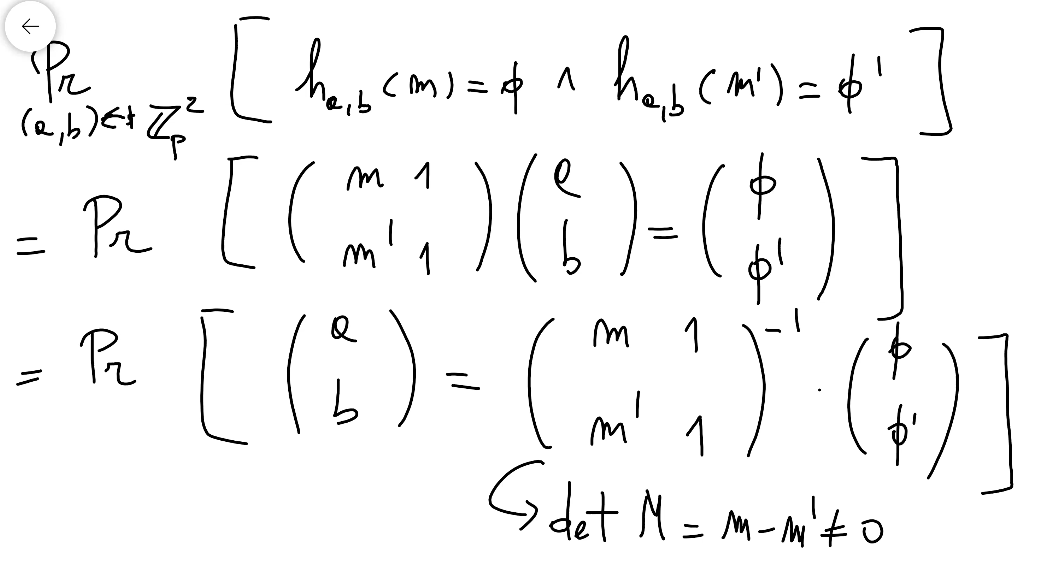 Pr_{(a,b)←$ ℤ_p^2} [ h_{a,b}(m) = ϕ ∧ h_{a,b}(m') = ϕ' ]
= Pr [ ( m 1 ; m' 1 ) ( a ; b ) = ( ϕ ; ϕ' ) ]
= Pr [ ( a ; b ) = ( m 1 ; m' 1 )^{-1} · ( ϕ ; ϕ' ) ]
↪ det M = m - m' ≠ 0